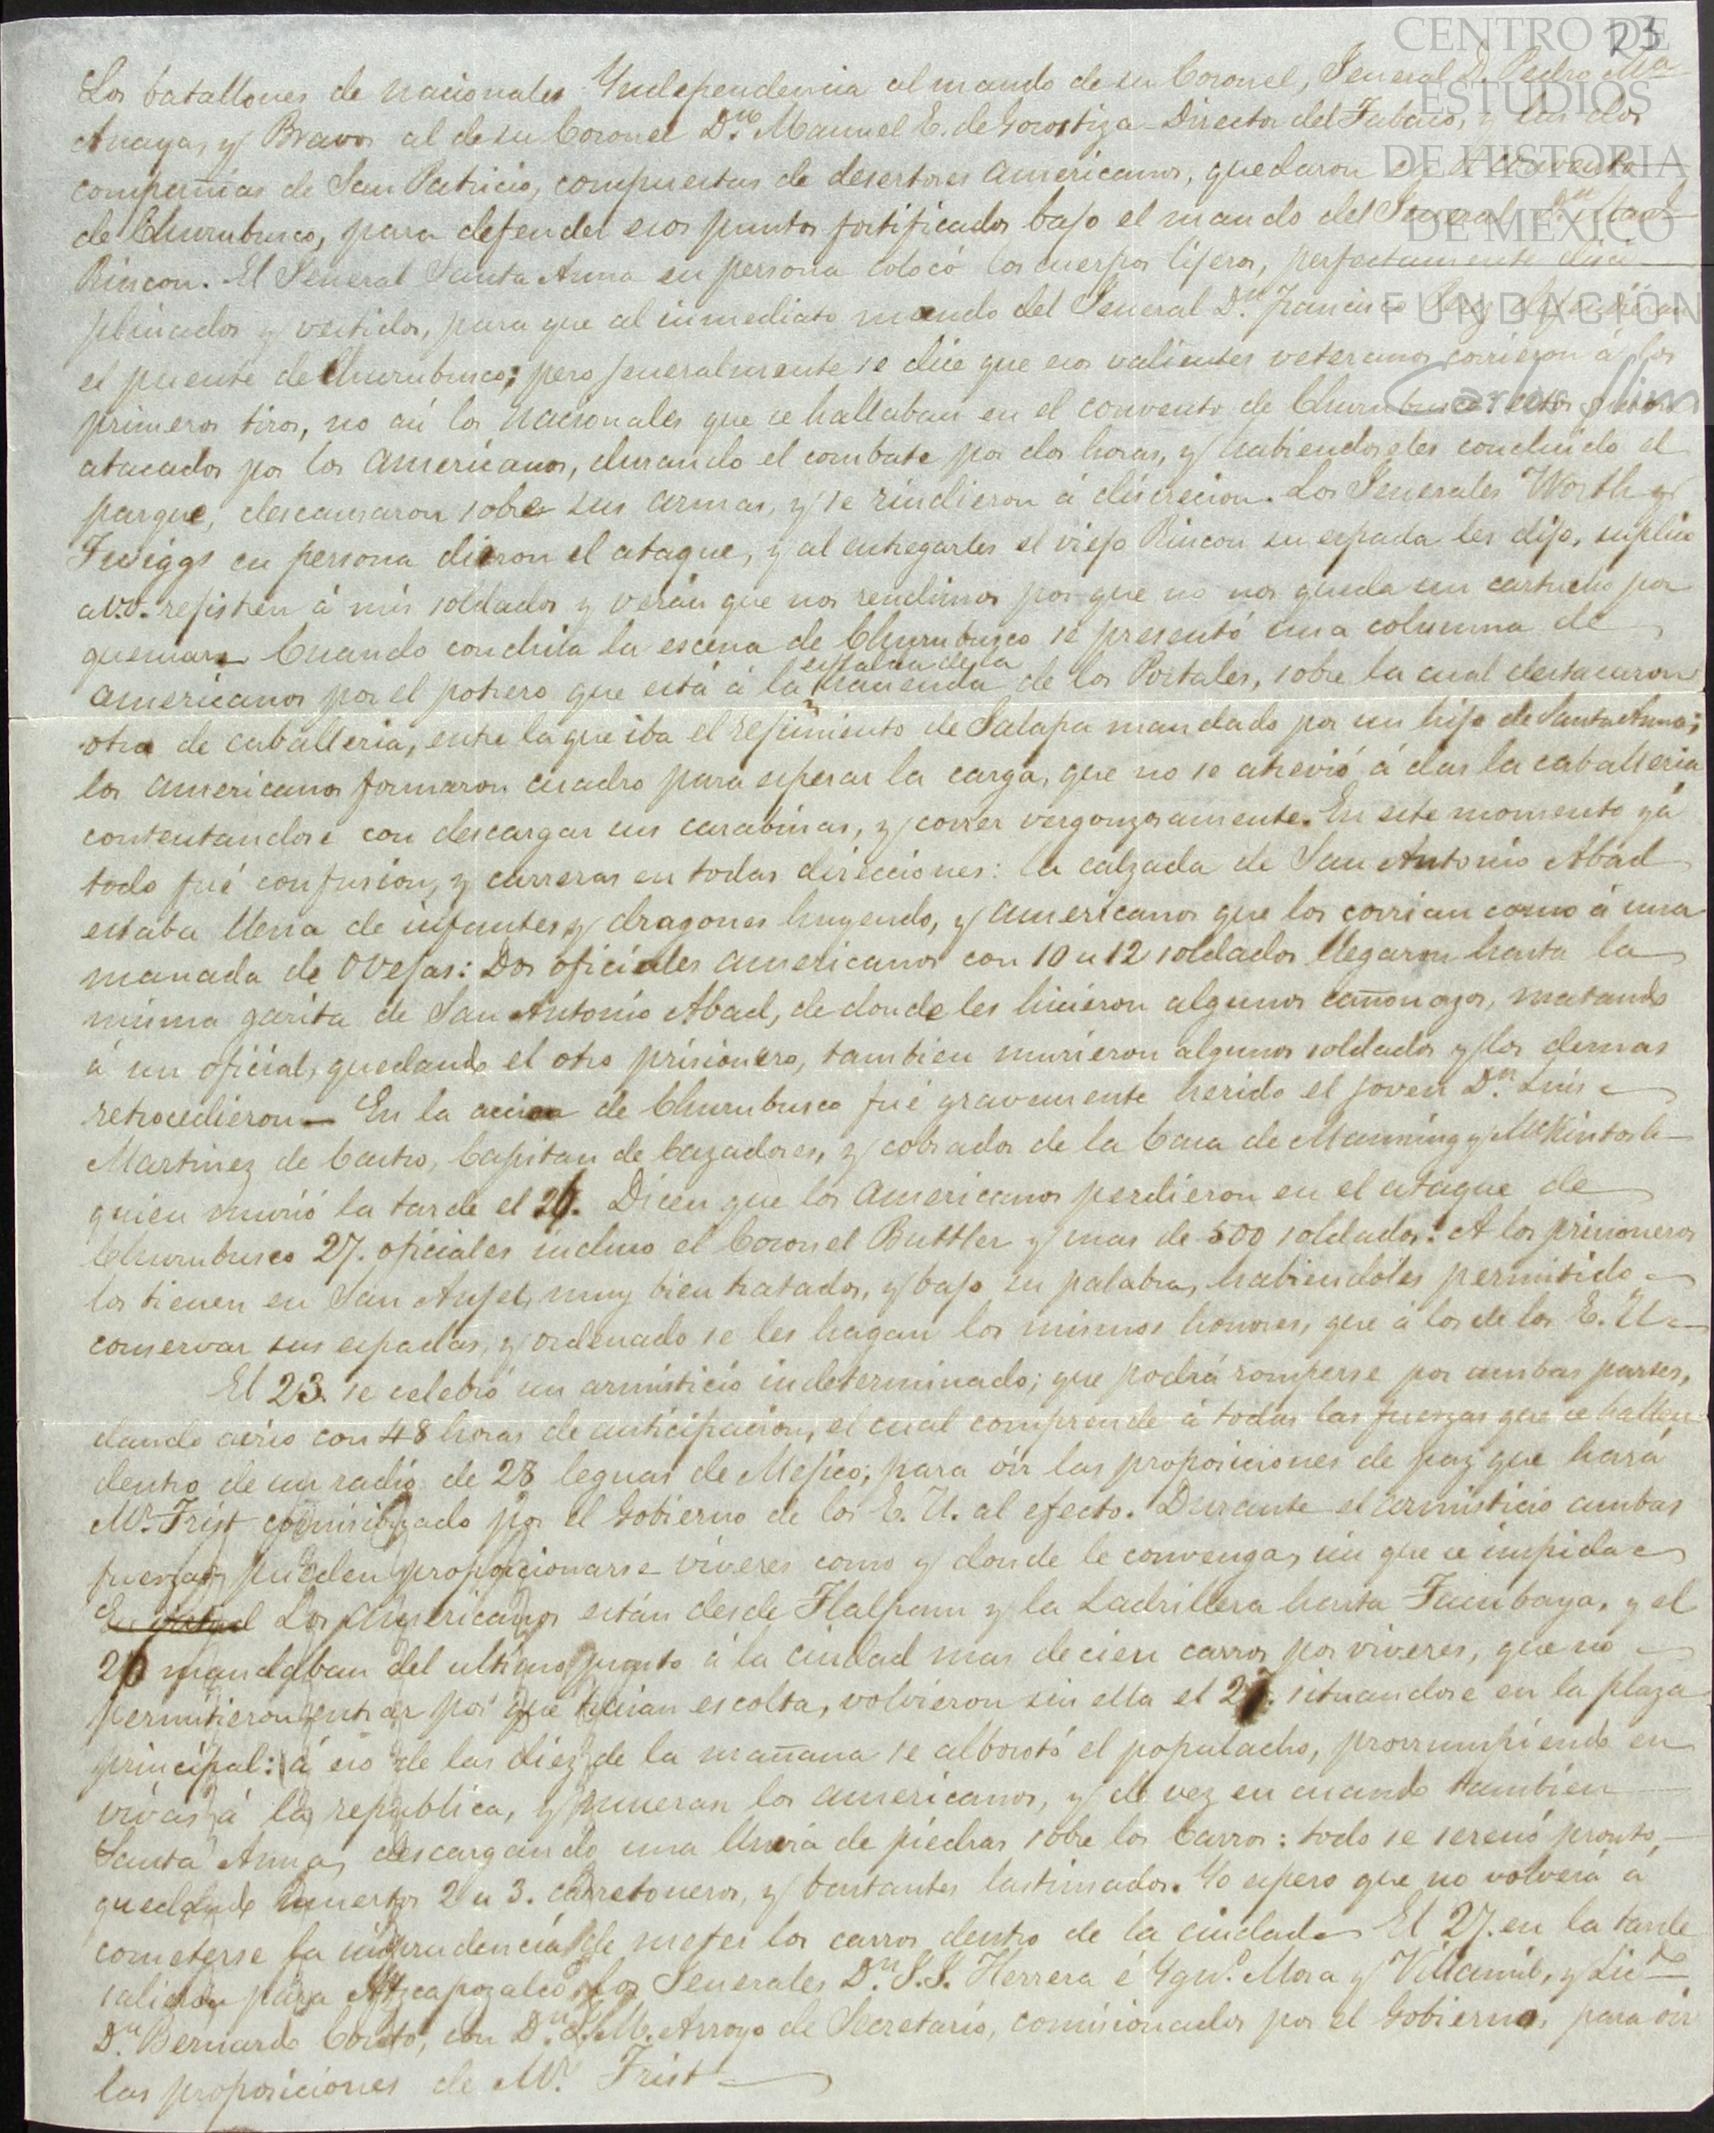 23
CENTRO DE
ESTUDIOS
DE HISTORIA
DE MEXICO
FUNDACIÓN
Carlos Slim
Los batallones de Nacionales Yndependencia al mando de su Coronel, General D. Pedro Ma
Anaya, y Bravos al de su Coronel Dn. Manuel E. de Gorostiza Director del Tabaco, y las dos
compeñias de San Patricio, compuestas de desertores americanos, quedaron en el convento
de Churubusco, para defender esos puntos fortificados bajo el mando del General Dn Manl
Rincon. El General Santa Anna en persona colocó los cuerpos lijeros, perfectamente disci-
plinados y vestidos, para que al inmediato mando del General Dn. Francisco defendieran
el puente de Churubusco; pero jeneralmente se dice que esos valientes veteranos corrieron á los
primeros tiros, no asi los Nacionales que se hallaban en el convento de Churubusco: estos fueron
atacados por los americanos, durando el combate por dos horas, y habiendoseles concluido el
parque, descansaron sobre sus armas, y se rindieron á discrecion. Los Generales Worth y
Twiggs en persona dieron el ataque, y al entregarles el viejo Rincon su espada les dijo, suplico
a V.V. rejistren á mis soldados y verán que nos rendimos por que no nos queda un cartucho por
quemar. Cuando concluia la escena de Churubusco se presentó una columna de
americanos por el potrero que está á la espalda de la hacienda de los Portales, sobre la cual destacaron
otra de caballeria, entre la que iba el rejimiento de Jalapa mandado por un hijo de Santa Anna;
los americanos formaron cuadro para esperar la carga, que no se atrevió á dar la caballeria
contentandose con descargar sus carabinas, y correr vergonzosamente. En este momento yá
todo fué confusion, y carreras en todas direcciones: la calzada de San Antonio Abad
estaba llena de infantes y dragones huyendo, y americanos que los corrian como á una
manada de Ovejas: Dos oficiales americanos con 10 u 12 soldados llegaron hasta la
misma garita de San Antonio Abad, de donde les hicieron algunos cañonazos, matando
á un oficial, quedando el otro prisionero, tambien murieron algunos soldados y los demas
retrocedieron — En la accion de Churubusco fué gravemente herido el joven Dn. Luis
Martinez de Castro, Capitan de Cazadores, y cobrador de la Casa de Manning y McKintosh
quien murió la tarde el 26. Dicen que los americanos perdieron en el ataque de
Churubusco 27. oficiales incluso el Coronel Buttler y mas de 500 soldados: A los prisioneros
los tienen en San Anjel, muy bien tratados, y bajo su palabra, habiendoles permitido
conservar sus espadas, y ordenado se les hagan los mismos honores, que á los de los E. U.
El 23. se celebró un armisticio indeterminado; que podrá romperse por ambas partes,
dando aviso con 48 horas de anticipacion, el cual comprende á todas las fuerzas que se hallen
dentro de un radio de 28 leguas de Mejico; para oir las proposiciones de paz que hará
Mr. Trist comisionado por el Gobierno de los E. U. al efecto. Durante el armisticio ambas
fuerzas pueden proporcionarse viveres como y donde le convenga, sin que se impida
En virtud Los Americanos están desde Tlalpam y la Ladrillera hasta Tacubaya, y el
26 mandaban del ultimo punto á la ciudad mas de cien carros por viveres, que no
permitieron entrar por que traian escolta, volvieron sin ella el 27. situandose en la plaza
principal: á eso de las diez de la mañana se alborotó el populacho, prorrumpiendo en
vivas á la republica, y mueran los americanos, y de vez en cuando tambien
Santa Anna, descargando una lluvia de piedras sobre los Carros: todo se serenó pronto,
quedando muertos 2 u 3. carretoneros, y bastantes lastimados. Yo espero que no volverá á
cometerse la imprudencia de meter los carros dentro de la ciudad. El 27. en la tarde
salieron para Atzcapozalco, los Generales Dn. J. J. Herrera é Ygno. Mora y Villamil, y Licdo
Dn. Bernardo Couto, con Dn. J. M. Arroyo de Secretario, comisionados por el Gobierno, para oir
las proposiciones de Mr. Trist